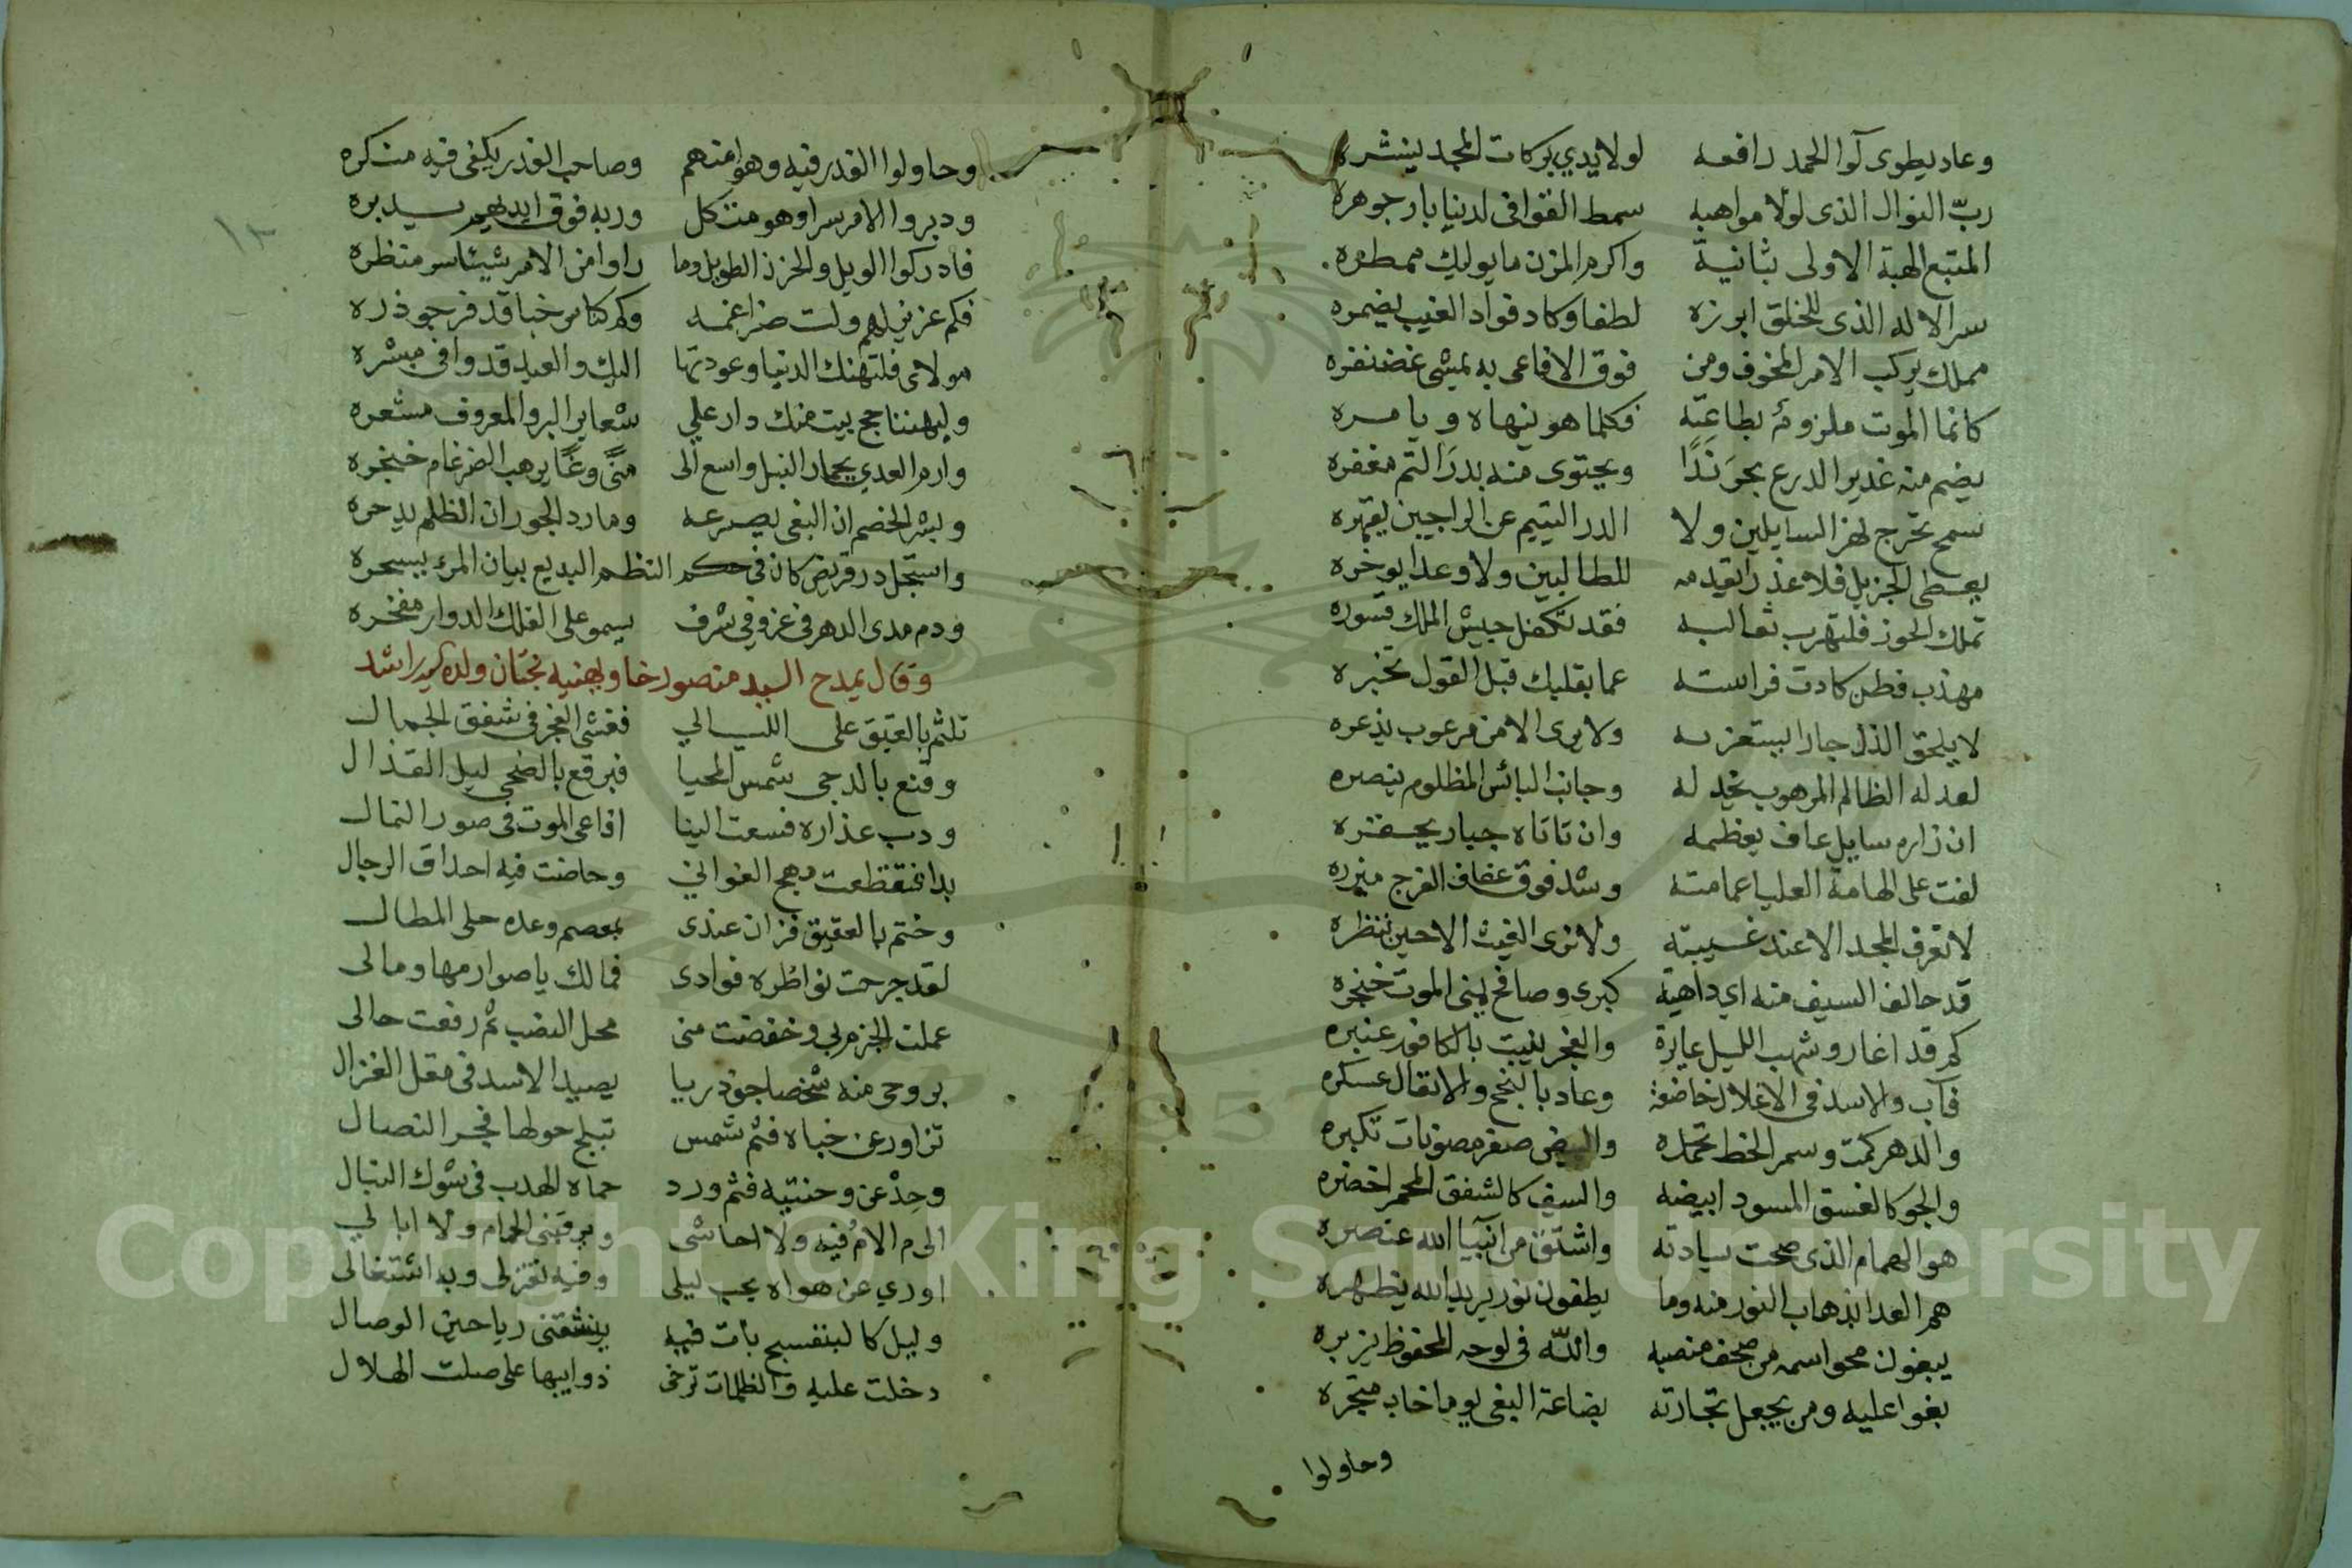 وعاد يطوى لوا الحمد رافعه لولا يدي بركات المجد ينشره
ربّ النوال الذى لولا مواهبه سمط القوافى لدنيا بار جوهره
المتبع الهبة الاولى بثانية واكرم المزن ما يوليك ممطره
سر الاله الذى للخلق ابرزه لطفا وكاد فواد الغيب يضمره
مملك يركب الامر المخوف ومن فوق الافاعى به يمشى غضنفره
كانما الموت ملزوم بطاعته فكلما هو ينهاه ويامره
يضم منه غدير الدرع بحر ندًا ويحتوى منه بدر التم مغفره
سمح تخرج لهز السايلين ولا الدر اليتيم عن الراجين يقهره
يعطى الجزيل فلا عذر يقدمه للطالبين ولا وعدا يوخره
تملك الحوز فلتهرب ثعالبه فقد تكفل جيش الملك قسوره
مهذب فطن كادت فراسته عما بقلبك قبل القول تخبره
لا يلحق الذل جارا يستعز به ولا يرى الامن مرعوب يذعره
لعدله الظالم المرهوب يخذله وجانب البائس المظلوم ينصره
ان زاره سايل عاف يعظمه وان تاتاه جبار يحقره
لفت على الهامة العليا عمامته وشد فوق عفاف الفرج ميزره
لا تعرف المجد الا عند غيبته ولا ترى الغيث الا حين تنظره
قد حالف السيف منه اي داهية كبرى وصافح يمنى الموت خنجره
كم قد اغار وشهب الليل غايرة والفجر ينبت بالكافور عنبره
فآب والاسد فى الاغلال خاضعة وعاد بالنجح والانفال عسكره
والدهر كمت وسمر الخط تحمله والبيض صفر مصونات تكبره
والجو كالغسق المسود ابيضه والسيف كالشفق المحمر اخضره
هو الهمام الذى صحت سيادته واشتق من انبيا الله عنصره
هم العدا بذهاب النور منه وما يطفون نور يريد الله يظهره
يبغون محو اسمه من صحف منصبه والله فى لوحه المحفوظ يزبره
بغوا عليه ومن يجعل تجارته بضاعة البغى يوما خاب متجره
وحاولوا
١٣
وحاولوا الغدر فيه وهو امنهم وصاحب الغدر يكفى فيه منكره
ودبروا الامر سرا وهو متكل وربه فوق ايديهم يدبره
فادركوا الويل والحزن الطويل وما راوا من الامر شيئا سر منظره
فكم عزيز لهم ولت ضراغمه وكم كناس خبا قد فر جوذره
مولاى فلتهنك الدنيا وعودتها اليك والعيد قد وافى مبشره
وليهننا حج بيت منك دار على شعاير البر والمعروف مشعره
وارم العدى بجمار النبل واسع الى منًى وغًا يرهب الضرغام خنجره
وبشر الخصم ان البغى يصرعه ومارد الجور ان الظلم يدحره
واستجل در قريض كان فى حكم النظم البديع بيان المرء يسحره
ودم مدى الدهر فى عز وفى شرف يسمو على الفلك الدوار مفخره
وقال يمدح السيد منصور خا ويهنيه بختان ولده السيد راشد
تلثم بالعقيق على اللئالي فغشى الفجر فى شفق الجمال
وقنع بالدجى شمس المحيا فبرقع بالضحى ليل القذال
ودب عذاره فسعت الينا افاعى الموت فى صور النمال
بدا فتقظعت مهج الغوانى وحاضت فيه احداق الرجال
وختم بالعقيق فزان عندى بمعصم وعده حلى المطال
لقد جرحت نواظره فوادى فمالك يا صوارمها ومالى
عملت الجزم بى وخفضت منى محل النصب ثم رفعت حالى
بروحى منه شخصا جوذريا يصيد الاسد فى مقل الغزال
تزاور عن خباه فثم شمس تبلج حولها فجر النصال
وحِدْ عن وجنتيه فثم ورد حماه الهدب فى شوك النبال
الى م الام فيه ولا احاشى ويرقبنى الحمام ولا ابالي
اورى عن هواه بحب ليلى وفيه تغزلى وبه اشتغالى
وليل كالبنفسج بات فيه ينشقنى رياحين الوصال
دخلت عليه والظلمات ترخى ذوايبها على صلت الهلال
Copyright © King Saud University
1957